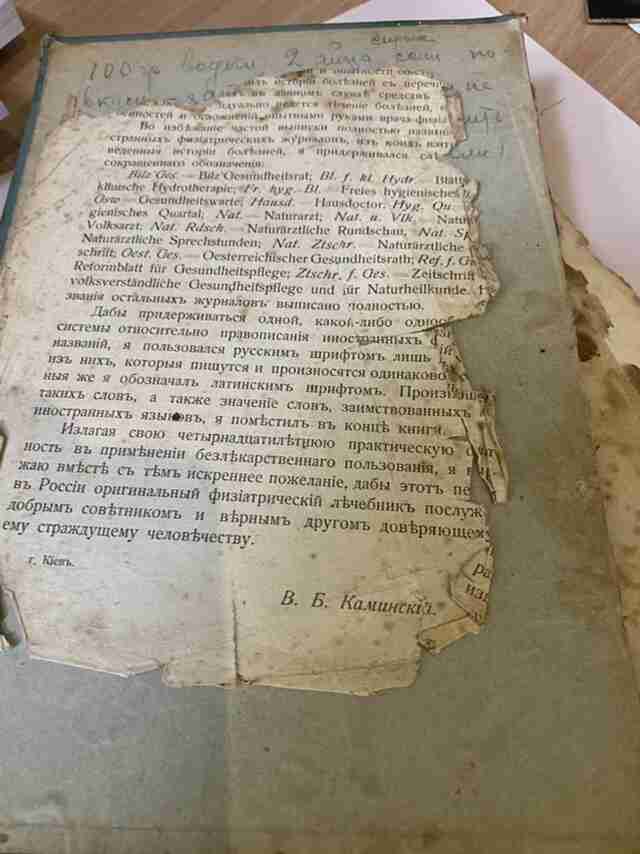 сырых
100гр водки 2 яйца соли по
вкусу
изъ исторіи болѣзней съ переч
въ данномъ случаѣ средствъ
ведется лѣченіе болѣзней,
опытными руками врача-физі
Во избѣжаніе частой выписки полностью назван
странныхъ физіатрическихъ журналовъ, изъ коихъ взят
веденныя исторіи болѣзней, я придерживался сл
сокращеннаго обозначенія:
Bilz Ges. — Bilz Gesundheitsrat; Bl. f. kl. Hydr. — Blätt
klinische Hydrotherapie; Fr. hyg. Bl. — Freies hygienisches
Gsw — Gesundheitswarte; Hausd. — Hausdoctor; Hyg. Qu.
gienisches Quartal; Nat. — Naturarzt; Nat. u. Vlk. — Natur
Volksarzt; Nat. Rdsch. — Naturärztliche Rundschau, Nat. Sp
Naturärztliche Sprechstunden; Nat. Ztschr. — Naturärztliche
schrift; Oest. Ges. — Oesterreichischer Gesundheitsrath; Ref. f. G
Reformblatt für Gesundheitspflege; Ztschr. f. Ges. — Zeitschrift
volksverständliche Gesundheitspflege und für Naturheilkunde.
званія остальныхъ журналовъ выписано полностью.
Дабы придерживаться одной, какой-либо одноо
системы относительно правописанія иностранныхъ
названій, я пользовался русскимъ шрифтомъ лишь
изъ нихъ, которыя пишутся и произносятся одинаково
ныя же я обозначалъ латинскимъ шрифтомъ. Произноше
такихъ словъ, а также значеніе словъ, заимствованныхъ
иностранныхъ языковъ, я помѣстилъ въ концѣ книги.
Излагая свою четырнадцатилѣтнюю практическую
ность въ примѣненіи безлѣкарственнаго пользованія, я
жаю вмѣстѣ съ тѣмъ искреннее пожеланіе, дабы этотъ пе
въ Россіи оригинальный физіатрическій лѣчебникъ послуж
добрымъ совѣтникомъ и вѣрнымъ другомъ довѣряющем
ему страждущему человѣчеству.
г. Кіевъ.
В. Б. Каминскій.
ра
изд